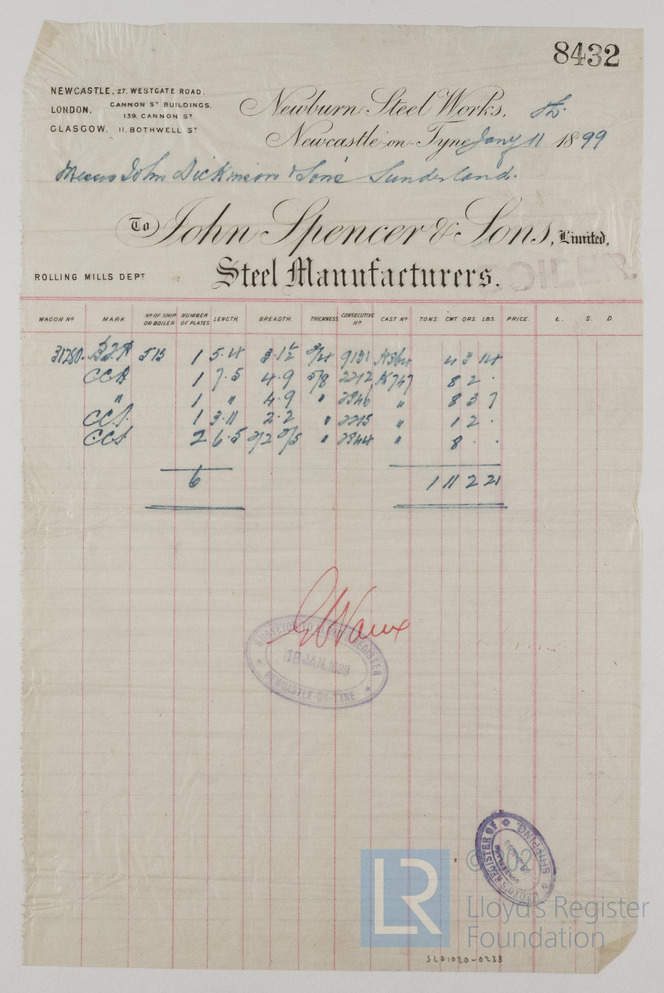 8432
NEWCASTLE, 27, WESTGATE ROAD.
LONDON, CANNON ST BUILDINGS, 139, CANNON ST
GLASGOW, 11, BOTHWELL ST
Newburn Steel Works,
Newcastle on Tyne Jany 11 1899
Messrs John Dickinson & Sons Sunderland.
To John Spencer & Sons, Limited,
ROLLING MILLS DEPT Steel Manufacturers.
WAGON No MARK No OF SHIP OR BOILER NUMBER OF PLATES LENGTH BREADTH THICKNESS CONSECUTIVE No CAST No TONS CWT QRS. LBS. PRICE. £. S. D.
515 1 5.4 3.1½ 4 3 14
1 7.5 4.9 5/8 2212 K747 8 2 .
" 1 " 4.9 " 2246 " 8 3 7
1 3.11 2.2 " 2215 " 1 2 .
2 6.5 " 2244 " 8 . .
6 1 11 2 21
SURVEYOR TO LLOYD'S REGISTER
JAN 1899
NEWCASTLE-ON-TYNE
LLOYD'S REGISTER OF SHIPPING
LR
Lloyd's Register
Foundation
SLD1020-0233